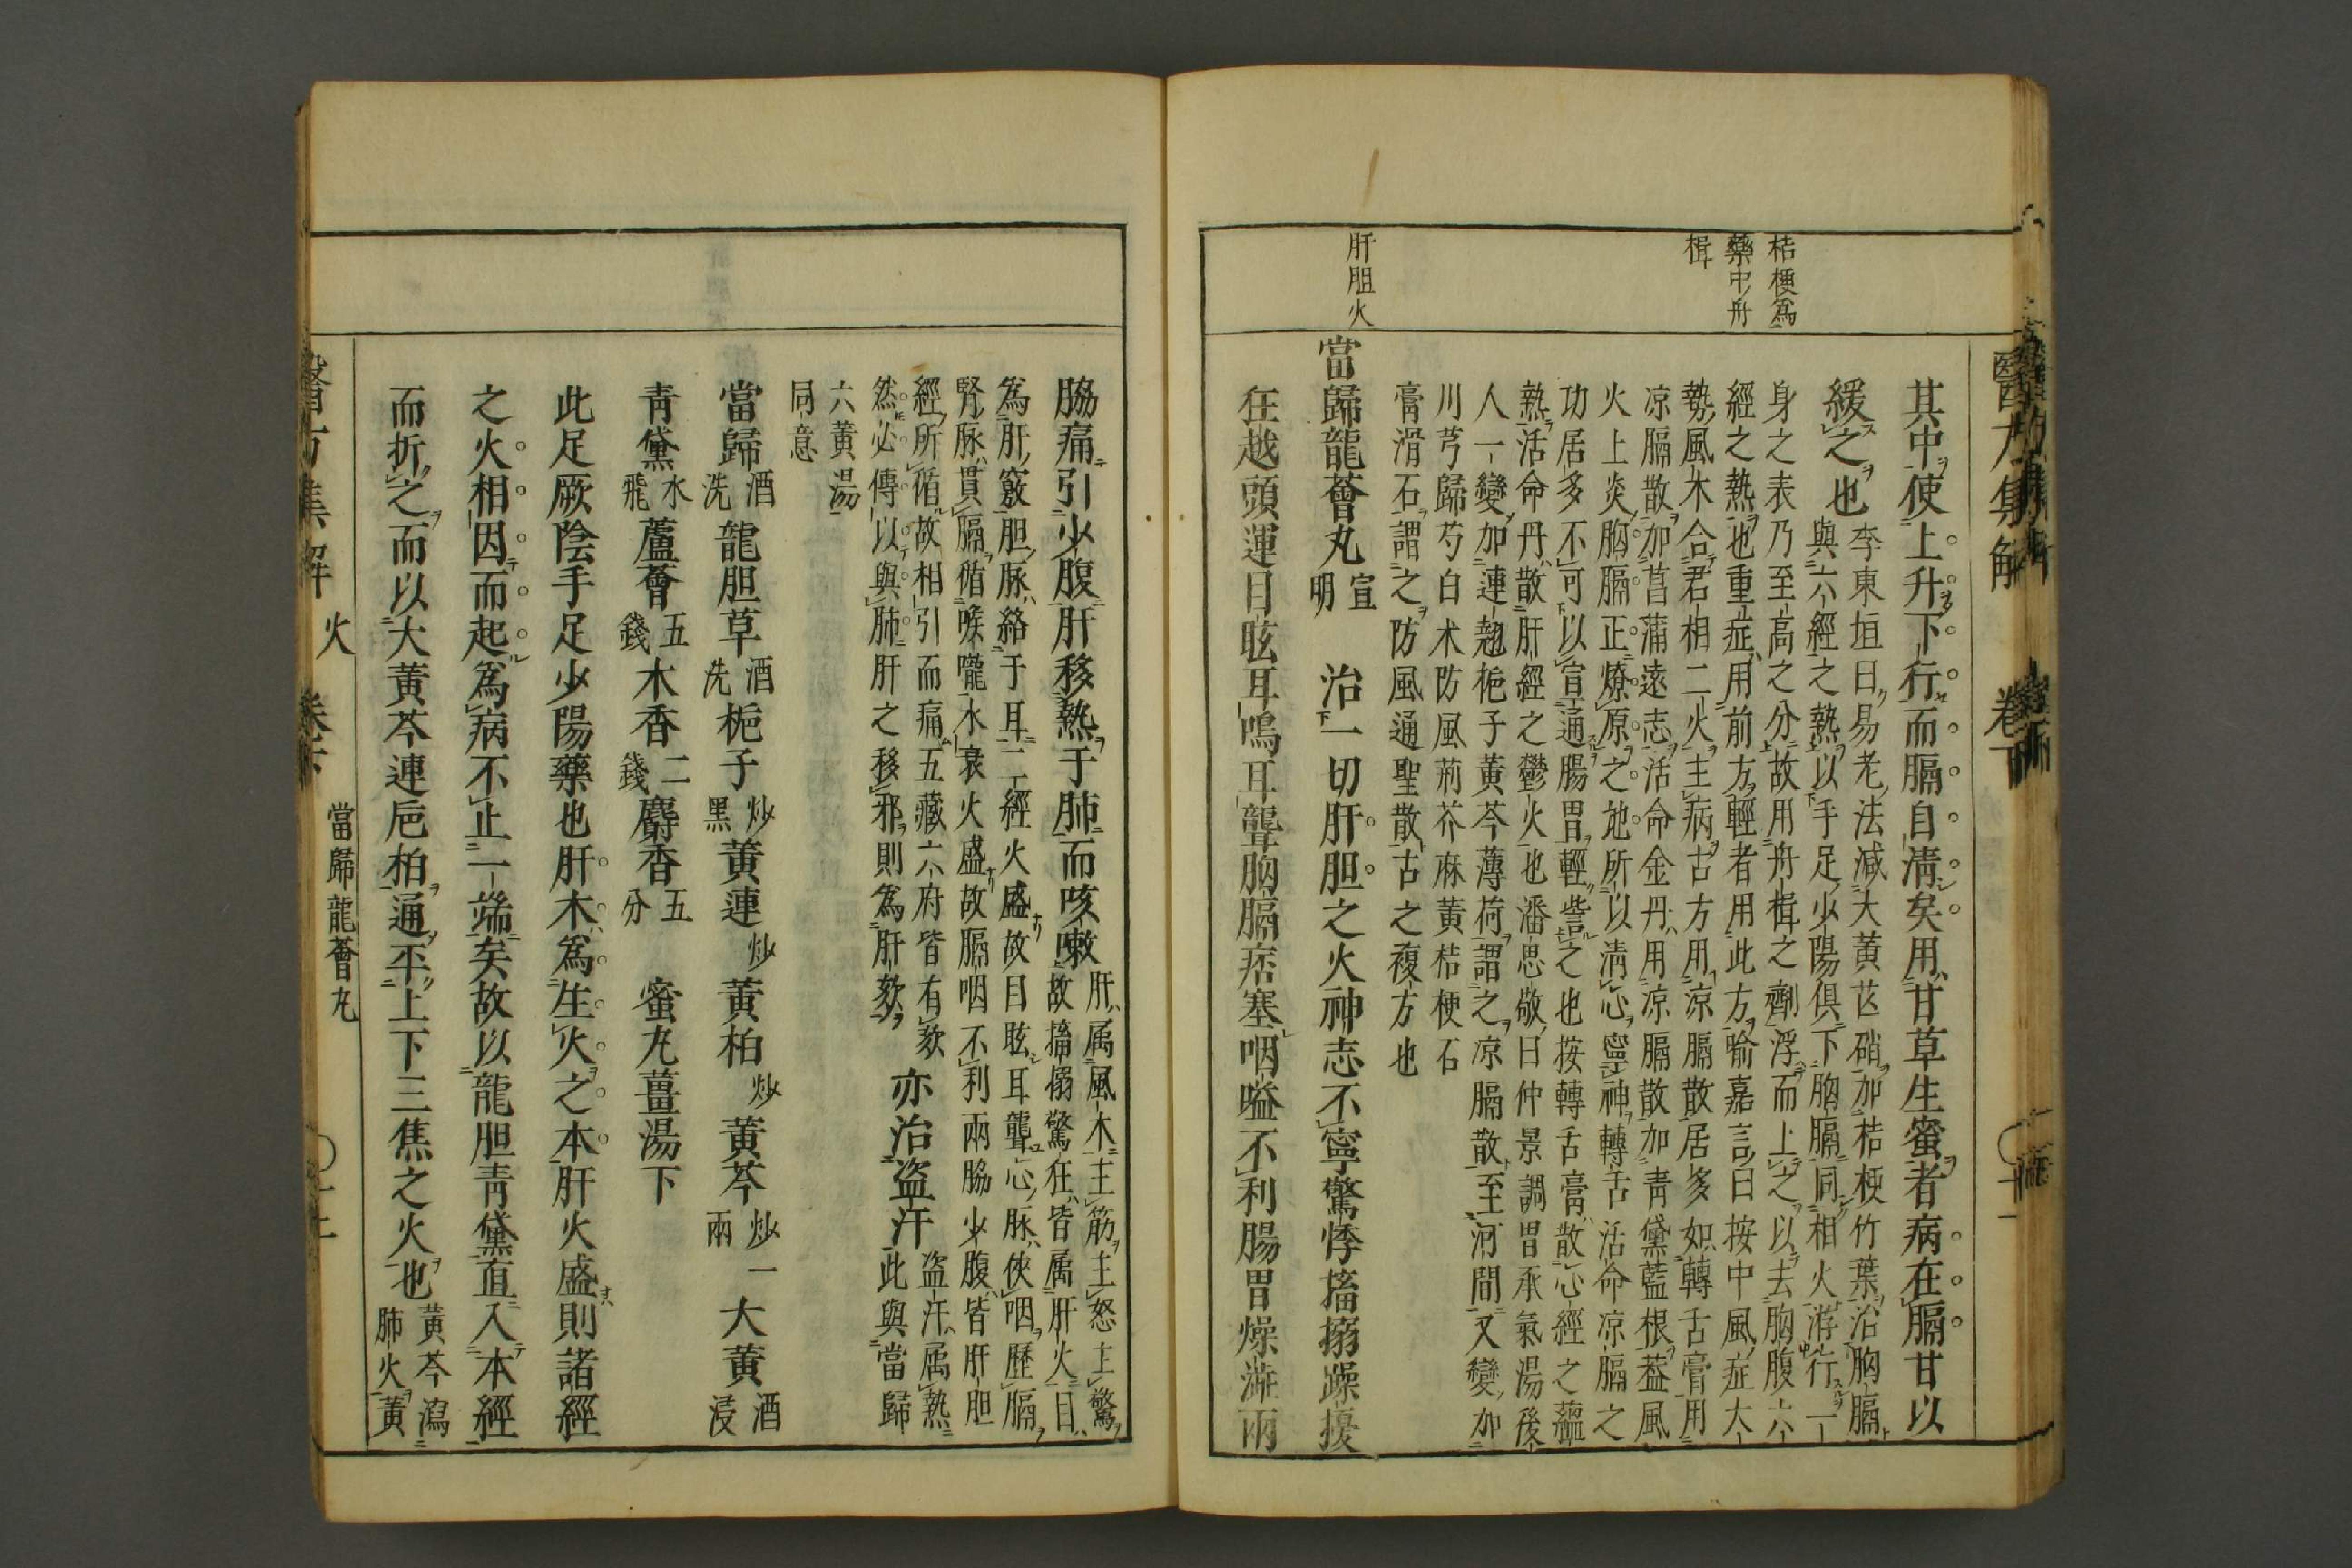 醫方集解　卷下
其中使上升下行而膈自清矣用甘草生蜜者病在膈甘以
緩之也
李東垣曰易老法減大黃芒硝加桔梗竹葉治胸膈
與六經之熱以手足少陽俱下胸膈同相火游行一
身之表乃至高之分故用舟楫之劑浮而上之以去胸腹六
經之熱也重症用前方輕者用此方喻嘉言曰按中風症大
勢風木合君相二火主病古方用凉膈散居多如轉舌膏用
凉膈散加菖蒲遠志活命金丹用凉膈散加青黛藍根葢風
火上炎胸膈正燎原之地所以清心寧神轉舌活命凉膈之
功居多不可以宣通腸胃輕訾之也按轉舌膏散心經之蘊
熱活命丹散肝經之鬱火也潘思敬曰仲景調胃承氣湯後
人一變加連翹梔子黃芩薄荷謂之凉膈散至河間又變加
川芎歸芍白术防風荊芥麻黃桔梗石
膏滑石謂之防風通聖散古之複方也
當歸龍薈丸　宣明　治一切肝胆之火神志不寧驚悸搐搦躁擾
狂越頭運目眩耳鳴耳聾胸膈痞塞咽嗌不利腸胃燥澁兩
桔梗爲
藥中舟
楫
肝胆火
脇痛引少腹肝移熱于肺而咳嗽
肝属風木主筋主怒主驚
故搐搦驚狂皆属肝火目
爲肝竅胆脉絡于耳二經火盛故目眩耳聾心脉俠咽歷膈
腎脉貫膈循喉嚨水衰火盛故膈咽不利兩脇少腹皆肝胆
經所循故相引而痛五藏六府皆有欬
然必傳以與肺肝之移邪則爲肝欬
亦治盜汗
盜汗属熱
此與當歸
六黃湯
同意
當歸酒洗　龍胆草酒洗　梔子炒黑　黃連炒　黃柏炒　黃芩炒一兩　大黃酒浸
青黛水飛　蘆薈五錢　木香二錢　麝香五分　蜜丸薑湯下
此足厥陰手足少陽藥也肝木爲生火之本肝火盛則諸經
之火相因而起爲病不止一端矣故以龍胆青黛直入本經
而折之而以大黃芩連巵柏通平上下三焦之火也
黃芩瀉
肺火黃
醫方集解　火　卷下　當歸龍薈丸